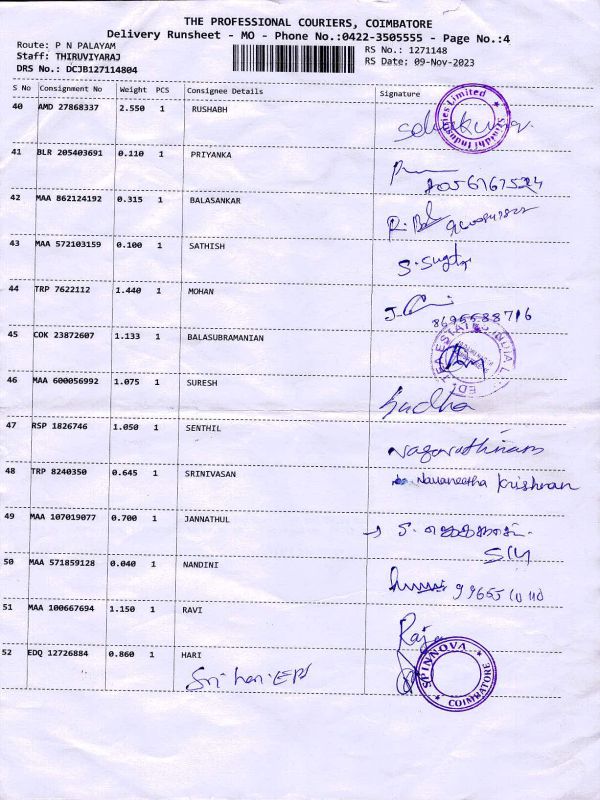 THE PROFESSIONAL COURIERS, COIMBATORE
Delivery Runsheet - MO - Phone No.:0422-3505555 - Page No.:4
Route: P N PALAYAM
Staff: THIRUVIYARAJ
DRS No.: DCJB127114804
RS No.: 1271148
RS Date: 09-Nov-2023
S No Consignment No Weight PCS Consignee Details Signature
40 AMD 27868337 2.550 1 RUSHABH
Industries Limited
41 BLR 205403691 0.110 1 PRIYANKA
42 MAA 862124192 0.315 1 BALASANKAR
43 MAA 572103159 0.100 1 SATHISH
44 TRP 7622112 1.440 1 MOHAN
45 COK 23872607 1.133 1 BALASUBRAMANIAN
46 MAA 600056992 1.075 1 SURESH
Sudha
47 RSP 1826746 1.050 1 SENTHIL
Nagarathinam
48 TRP 8240350 0.645 1 SRINIVASAN
Navaneetha Krishnan
49 MAA 107019077 0.700 1 JANNATHUL
50 MAA 571859128 0.040 1 NANDINI
51 MAA 100667694 1.150 1 RAVI
Raja
52 EDQ 12726884 0.860 1 HARI
SPINNOVA COIMBATORE